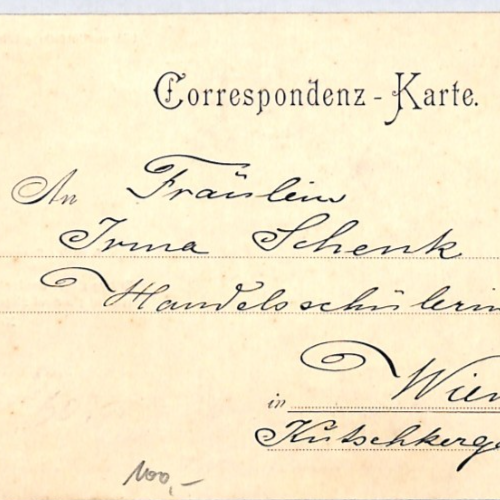 Correspondenz-Karte.
An Fräulein
Irma Schenk
Handelsschülerin
in Wien
Kutschkerga
100,-